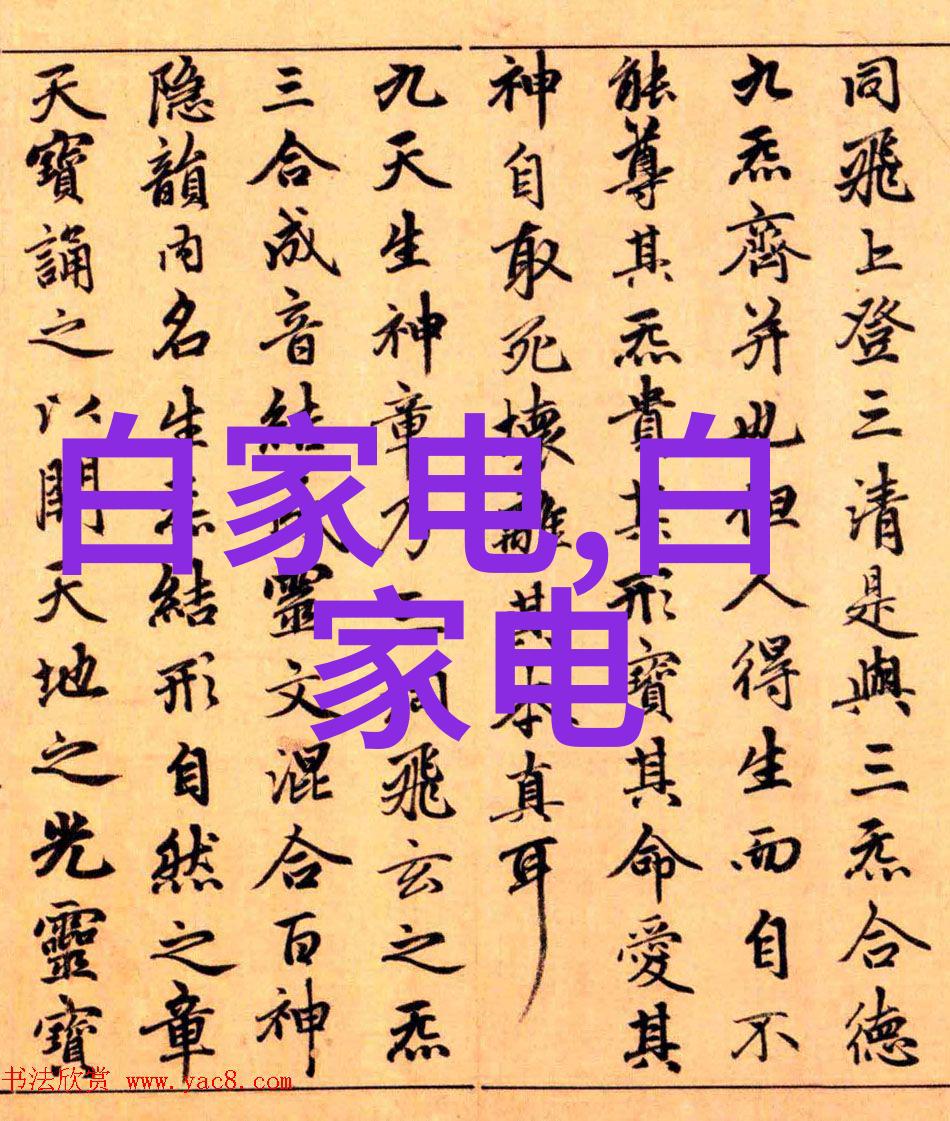 同飛上登三清是與三炁合德
九炁齊并也但人得生而自不
能尊其炁貴其形寶其命愛其
神自取死壞離其本真耳
九天生神章乃三洞飛玄之炁
三合成音結成靈文混合百神
隐韻内名生炁結形自然之章
天寶誦之以開天地之光靈寶
白家电,白
家电
书法欣赏 www.yac8.com